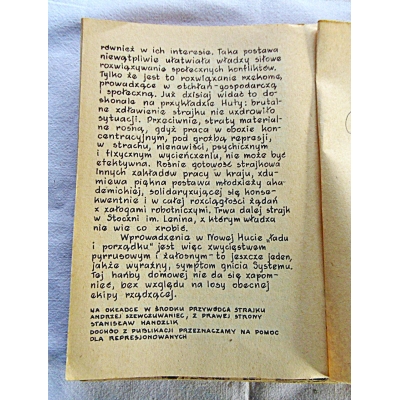 również w ich interesie. Taka postawa
niewątpliwie ułatwiała władzy siłowe
rozwiązywanie społecznych konfliktów.
Tylko że jest to rozwiązanie rzekome,
prowadzące w otchłań gospodarczą
i społeczną. Już dzisiaj widać to do-
skonale na przykładzie Huty: brutal-
ne zdławienie strajku nie uzdrowiło
sytuacji. Przeciwnie, straty material-
ne rosną, gdyż praca w obozie kon-
centracyjnym, pod groźbą represji,
w strachu, nienawiści, psychicznym
i fizycznym wycieńczeniu, nie może być
efektywna. Rośnie gotowość strajkowa
innych zakładów pracy w kraju, zdu-
miewa piękna postawa młodzieży aka-
demickiej, solidaryzującej się konse-
kwentnie i w całej rozciągłości żądań
z załogami robotniczymi. Trwa dalej strajk
w Stoczni im. Lenina, z którym władza
nie wie co zrobić.
Wprowadzenie w Nowej Hucie „ładu
i porządku" jest więc zwycięstwem
pyrrusowym i żałosnym - to jeszcze jeden,
jakże wyraźny, symptom gnicia Systemu.
Tej hańby domowej nie da się zapom-
nieć, bez względu na losy obecnej
ekipy rządzącej.
NA OKŁADCE W ŚRODKU PRZYWÓDCA STRAJKU
ANDRZEJ SZEWCZUWANIEC, Z PRAWEJ STRONY
STANISŁAW HANDZLIK
DOCHÓD Z PUBLIKACJI PRZEZNACZAMY NA POMOC
DLA REPRESJONOWANYCH